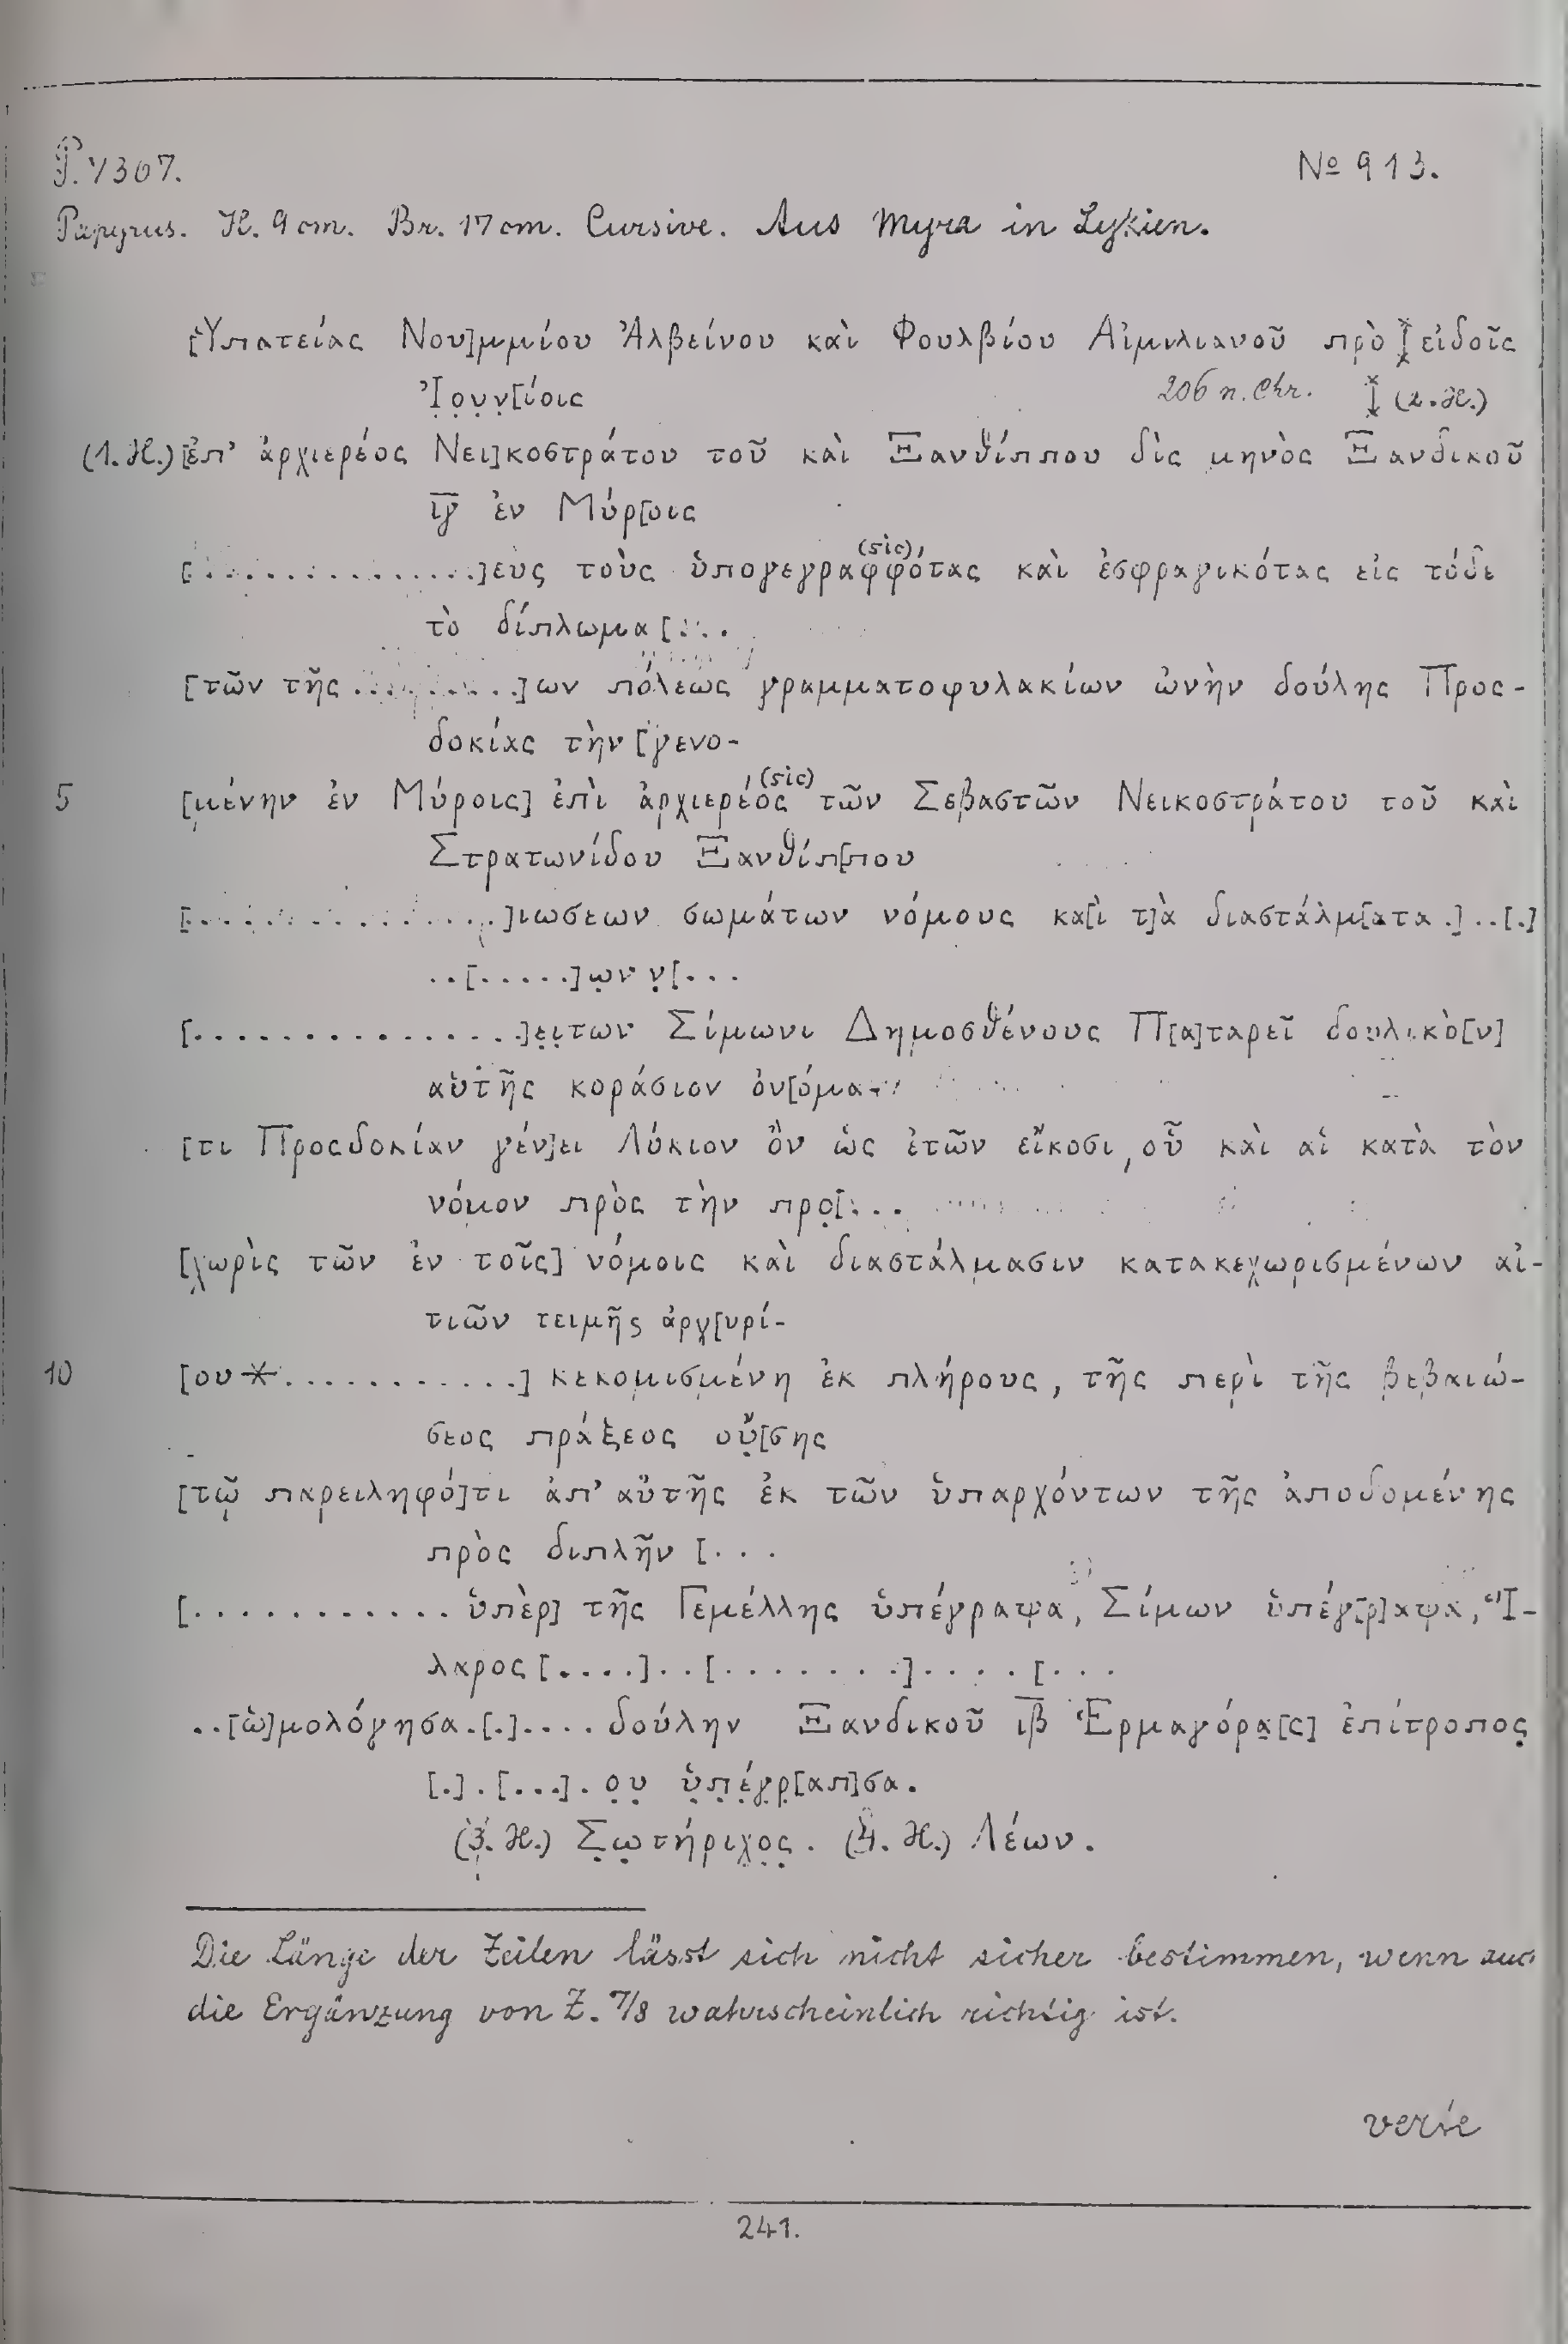 P. 7307. № 913.
Papyrus. H. 9 cm. Br. 17 cm. Cursive. Aus Myra in Lykien.
[Ὑπατείας Νου]μμίου Ἀλβείνου καὶ Φουλβίου Αἰμιλιανοῦ πρὸ εἰδοῖς
Ἰ̣ο̣υ̣ν̣[ίοις 206 n. Chr. (2. H.)
(1. H.) [ἐπ' ἀρχιερέος Νει]κοστράτου τοῦ καὶ Ξανθίππου δὶς μηνὸς Ξανδικοῦ
ι̅γ̅ ἐν Μύρ[οις
[...............]ευς τοὺς ὑπογεγραφφότας (sic) καὶ ἐσφραγικότας εἰς τόδε
τὸ δίπλωμα [...
[τῶν τῆς .........]ων πόλεως γραμματοφυλακίων ὠνὴν δούλης Προς-
δοκίας τὴν [γενο-
5 [μένην ἐν Μύροις] ἐπὶ ἀρχιερέος (sic) τῶν Σεβαστῶν Νεικοστράτου τοῦ καὶ
Στρατωνίδου Ξανθίπ[που
[...............]ιωσεων σωμάτων νόμους κα[ὶ τ]ὰ διαστάλμ[ατα .]..[.]
..[.....]ω̣ν ν̣[...
[................]ε̣ι̣των Σίμωνι Δημοσθένους Π[α]ταρεῖ δουλικὸ[ν]
αὐτῆς κοράσιον ὀν[όμα-
[τι Προςδοκίαν γέν]ει Λύκιον ὂν ὡς ἐτῶν εἴκοσι, οὗ καὶ αἱ κατὰ τὸν
νόμον πρὸς τὴν προ̣[...
[χωρὶς τῶν ἐν τοῖς] νόμοις καὶ διαστάλμασιν κατακεχωρισμένων αἰ-
τιῶν τειμῆς ἀργ[υρί-
10 [ου ⚹...........] κεκομισμένη ἐκ πλήρους, τῆς περὶ τῆς βεβαιώ-
σεος πράξεος οὔ̣[σης
[τῷ παρειληφό]τι ἀπ' αὐτῆς ἐκ τῶν ὑπαρχόντων τῆς ἀποδομένης
πρὸς διπλῆν [...
[............ ὑπὲρ] τῆς Γεμέλλης ὑπέγραψα, Σίμων ὑπέγ[ρ]αψα, Ἵ-
λαρος [....]..[.......]....[...
..[ὡ]μολόγησα.[.].... δούλην Ξανδικοῦ ι̅β̅ Ἑρμαγόρα̣[ς] ἐπίτροπος̣
[.].[...]. ο̣υ̣ ὑ̣π̣έ̣γ̣ρ̣[απ]σα.
(3. H.) Σ̣ω̣τήριχ̣ο̣ς̣. (4. H.) Λέων.
Die Länge der Zeilen lässt sich nicht sicher bestimmen, wenn auc
die Ergänzung von Z. 7/8 wahrscheinlich richtig ist.
241.